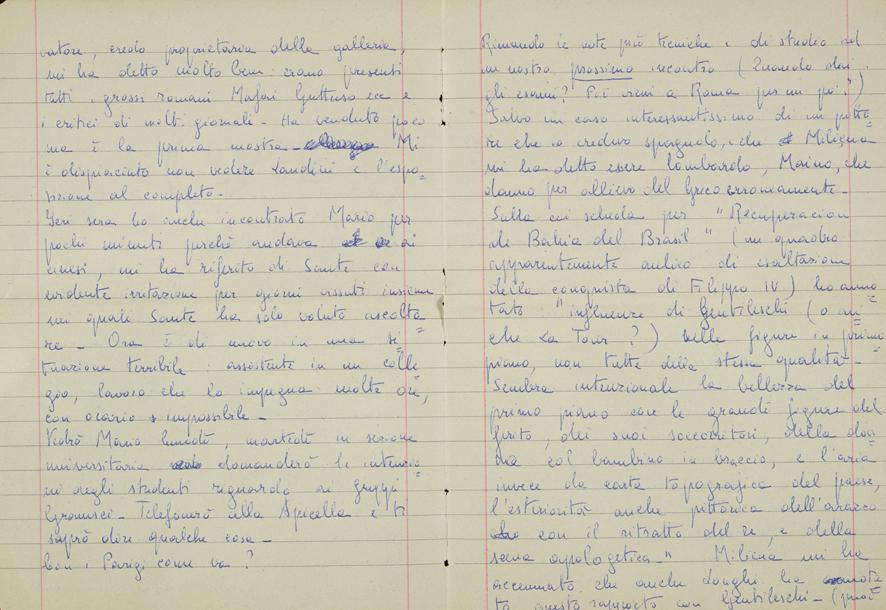 vatore, credo proprietaria della galleria,
mi ha detto molto bene: erano presenti
tutti i grossi romani Mafai Guttuso ecc e
i critici di molti giornali - Ha venduto poco
ma è la prima mostra - Mi
è dispiaciuto non vedere Landini e l'espo=
sizione al completo -
Ieri sera ho anche incontrato Mario per
pochi minuti perché andava ai
cinesi, mi ha riferito di Sante con
evidente irritazione per giorni vissuti insieme
nei quali Sante ha solo voluto ascolta
re - Ora è di nuovo in una si=
tuazione terribile: assistente in un colle
gio, lavoro che lo impegna molte ore,
con orario impossibile -
Vedrò Mario lunedì, martedì in sezione
universitaria domanderò le intenzio=
ni degli studenti riguardo ai gruppi
Gramsci - Telefonerò alla Spicella e ti
saprò dire qualche cosa -
Parigi come va?
Rimando le note più tecniche e di studio ad
un nostro prossimo incontro (Quando dai
gli esami? Poi vieni a Roma per un po'?)
Salvo un caso interessantissimo di un pitto
re che io credevo spagnolo, e che Milicua
mi ha detto essere lombardo, Maino, che
danno per allievo del Greco erroneamente -
Sulla cui scheda per "Recuperacion
de Bahia del Brasil" (un quadro
apparentemente aulico di esaltazione
della conquista di Filippo IV) ho anno
tato: "influenze di Gentileschi (o an=
che La Tour?) nelle figure in primo
piano, non tutte della stessa qualità -
Sembra intenzionale la bellezza del
primo piano con le grandi figure del
ferito, dei suoi soccorritori, della don
na col bambino in braccio, e l'aria
invece da carta topografica del paese,
l'esteriorità anche pittorica dell'arazzo
con il ritratto del re, e della
scena apologetica -" Milicua mi ha
accennato che anche Longhi ha nota
to questo rapporto con Gentileschi -